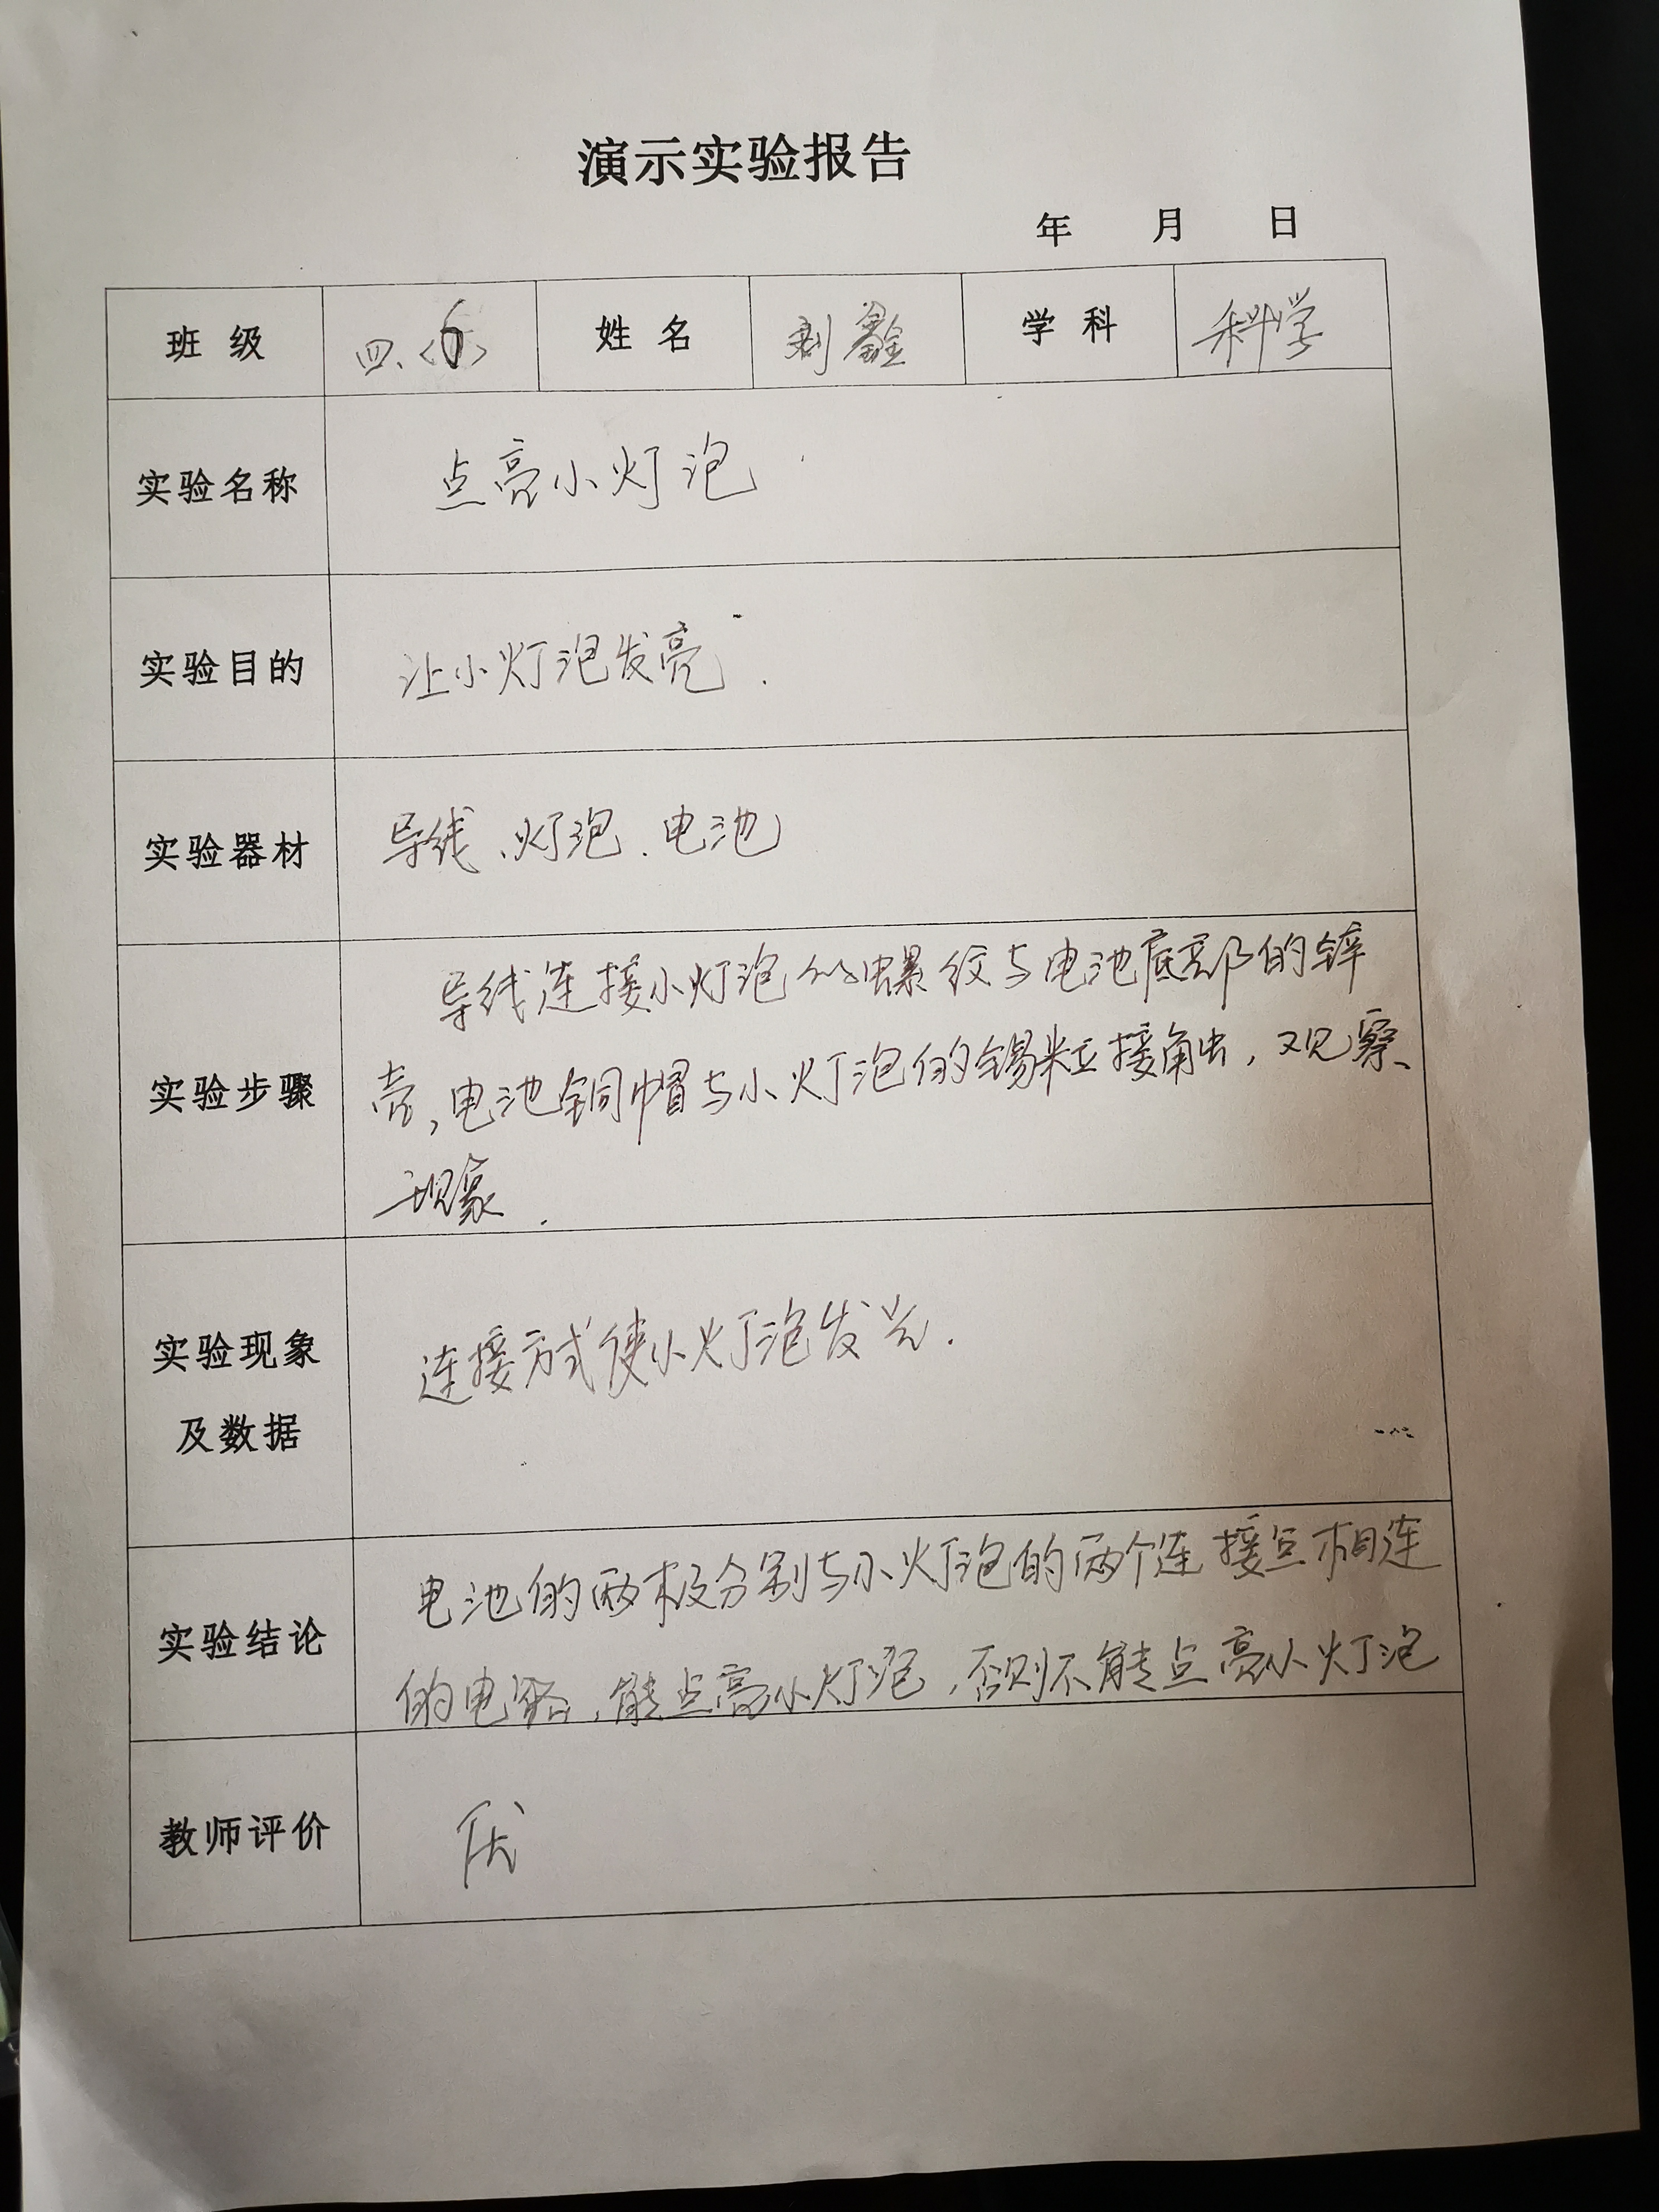 演示实验报告
年 月 日
班级 四.<6> 姓名 刘鑫 学科 科学
实验名称 点亮小灯泡
实验目的 让小灯泡发亮.
实验器材 导线、灯泡、电池
导线连接小灯泡的螺纹与电池底部的锌
实验步骤 壳,电池铜帽与小灯泡的锡粒接触,观察
现象.
实验现象 连接方式使小灯泡发光.
及数据
电池的两极分别与小灯泡的两个连接点相连
实验结论
的电路,能点亮小灯泡,否则不能点亮小灯泡
教师评价